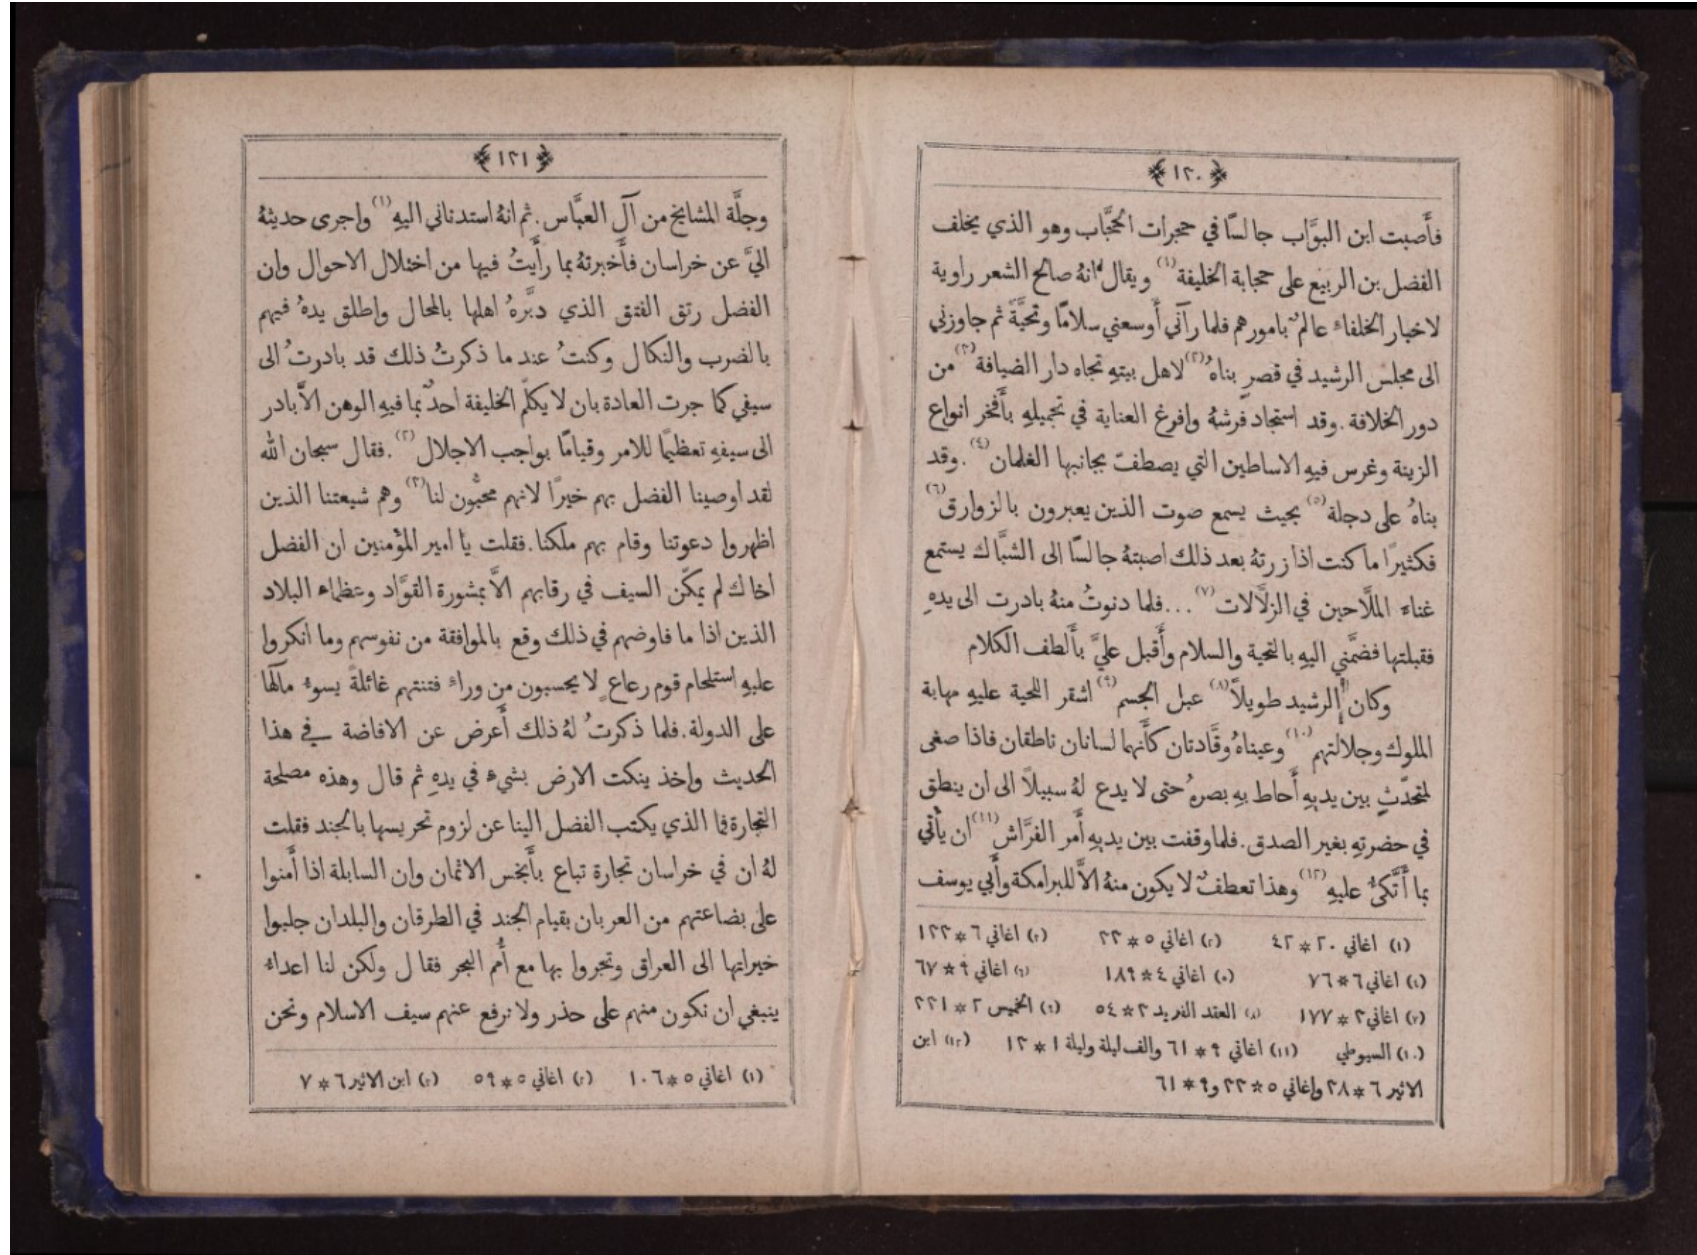 ﴿١٢٠﴾
فأَصبت ابن البوَّاب جالسًا في حجرات الحجَّاب وهو الذي يخلف
الفضل بن الربيع على حجابة الخليفة (١) ويقال انهُ صالح الشعر راوية
لاخبار الخلفاءِ عالمٌ بامورهم فلما رآني أَوسعني سلامًا وتحيَّةً ثم جاوزني
الى مجلس الرشيد في قصرٍ بناهُ (٢) لاهل بيتهِ تجاه دار الضيافة (٣) من
دور الخلافة. وقد استجاد فرشهُ وافرغ العناية في تجميلهِ بأَفخر انواع
الزينة وغرس فيهِ الاساطين التي يصطفُّ بجانبها الغلمان (٤). وقد
بناهُ على دجلة (٥) بحيث يسمع صوت الذين يعبرون بالزوارق (٦)
فكثيرًا ما كنت اذا زرتهُ بعد ذلك اصبتهُ جالسًا الى الشبَّاك يستمع
غناءَ الملَّاحين في الزلَّالات (٧)... فلما دنوتُ منهُ بادرت الى يدهِ
فقبلتها فضمَّني اليهِ بالتحية والسلام وأَقبل عليَّ بأَلطف الكلام
وكان الرشيد طويلاً (٨) عبل الجسم (٩) اشقر اللحية عليهِ مهابة
الملوك وجلالتهم (١٠) وعيناهُ وقَّادتان كأَنهما لسانان ناطقان فاذا صغى
لمتحدّثٍ بين يديهِ أَحاط بهِ بصرهُ حتى لا يدع لهُ سبيلاً الى ان ينطق
في حضرتهِ بغير الصدق. فلما وقفت بين يديهِ أَمر الفرَّاش (١١) ان يأْتي
بما أَتَّكئُ عليهِ (١٢) وهذا تعطفٌ لا يكون منهُ الَّا للبرامكة وأَبي يوسف
(١) اغاني ٢٠ * ٤٢ (٢) اغاني ٥ * ٢٢ (٣) اغاني ٦ * ١٢٢
(٤) اغاني ٦ * ٧٦ (٥) اغاني ٤ * ١٨٩ (٦) اغاني ٩ * ٦٧
(٧) اغاني ٣ * ١٧٧ (٨) العقد الفريد ٣ * ٥٤ (٩) الخميس ٢ * ٢٢١
(١٠) السيوطي (١١) اغاني ٩ * ٦١ والف ليلة وليلة ١ * ١٢ (١٢) ابن
الاثير ٦ * ٢٨ واغاني ٥ * ٢٢ و ٩ * ٦١
﴿١٢١﴾
وجلَّة المشايخ من آل العبَّاس. ثم انهُ استدناني اليهِ (١) واجرى حديثهُ
اليَّ عن خراسان فأَخبرتهُ بما رأَيتُ فيها من اختلال الاحوال وان
الفضل رتق الفتق الذي دبَّرهُ اهلها بالمحال واطلق يدهُ فيهم
بالضرب والنكال وكنتُ عند ما ذكرتُ ذلك قد بادرتُ الى
سيفي كما جرت العادة بان لا يكلّم الخليفة احدٌ بما فيهِ الوهن الَّا بادر
الى سيفهِ تعظيمًا للامر وقيامًا بواجب الاجلال (٢). فقال سبحان الله
لقد اوصينا الفضل بهم خيرًا لانهم محبُّون لنا (٣) وهم شيعتنا الذين
اظهروا دعوتنا وقام بهم ملكنا. فقلت يا امير المؤْمنين ان الفضل
اخاك لم يمكّن السيف في رقابهم الَّا بمشورة القوَّاد وعظماء البلاد
الذين اذا ما فاوضهم في ذلك وقع بالموافقة من نفوسهم وما انكروا
عليهِ استلحام قوم رعاعٍ لا يحسبون من وراءِ فتنتهم غائلةً يسوءُ مآلها
على الدولة. فلما ذكرتُ لهُ ذلك أَعرض عن الافاضة في هذا
الحديث واخذ ينكت الارض بشيءٍ في يدهِ ثم قال وهذه مصلحة
التجارة فما الذي يكتب الفضل الينا عن لزوم تحريسها بالجند فقلت
لهُ ان في خراسان تجارة تباع بأَبخس الاثمان وان السابلة اذا أَمنوا
على بضاعتهم من العربان بقيام الجند في الطرقان والبلدان جلبوا
خيراتها الى العراق وتجروا بها مع أُمم البحر فقال ولكن لنا اعداءً
ينبغي ان نكون منهم على حذر ولا نرفع عنهم سيف الاسلام ونحن
(١) اغاني ٥ * ١٠٦ (٢) اغاني ٥ * ٥٩ (٣) ابن الاثير ٦ * ٧